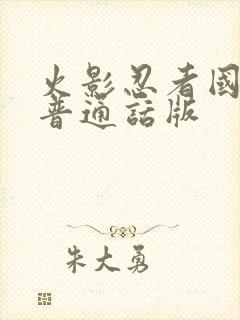 火影忍者國
普通話版
朱大勇